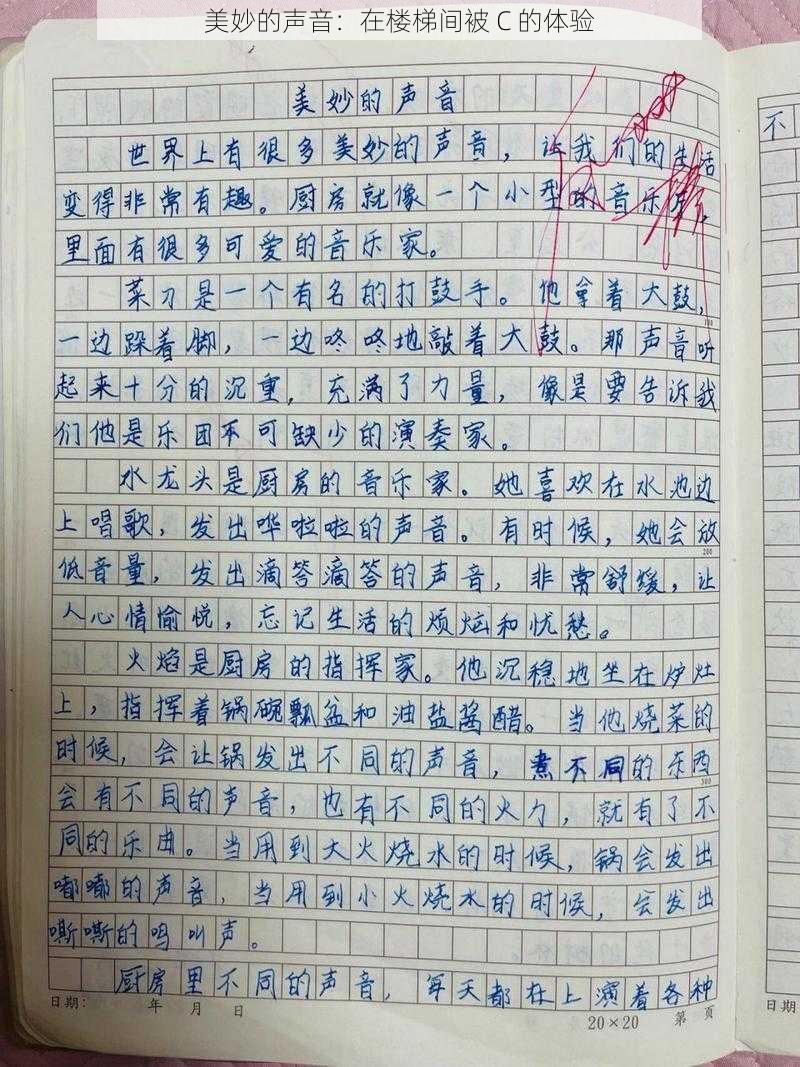 美妙的声音：在楼梯间被 C 的体验
美妙的声音
世界上有很多美妙的声音，让我们的生活
变得非常有趣。厨房就像一个小型的音乐
里面有很多可爱的音乐家。
菜刀是一个有名的打鼓手。他拿着大鼓，
一边跺着脚，一边咚咚地敲着大鼓。那声音听
起来十分的沉重，充满了力量，像是要告诉我
们他是乐团不可缺少的演奏家。
水龙头是厨房的音乐家。她喜欢在水池边
上唱歌，发出哗啦啦的声音。有时候，她会放
低音量，发出滴答滴答的声音，非常舒缓，让
人心情愉悦，忘记生活的烦恼和忧愁。
火焰是厨房的指挥家。他沉稳地坐在炉灶
上，指挥着锅碗瓢盆和油盐酱醋。当他烧菜的
时候，会让锅发出不同的声音，煮不同的东西
会有不同的声音，也有不同的火力，就有了不
同的乐曲。当用到大火烧水的时候，锅会发出
嘟嘟的声音，当用到小火烧水的时候，会发出
嘶嘶的鸣叫声。
厨房里不同的声音，每天都在上演着各种
100
200
300
日期： 年 月 日
20×20 第 页
不
日期